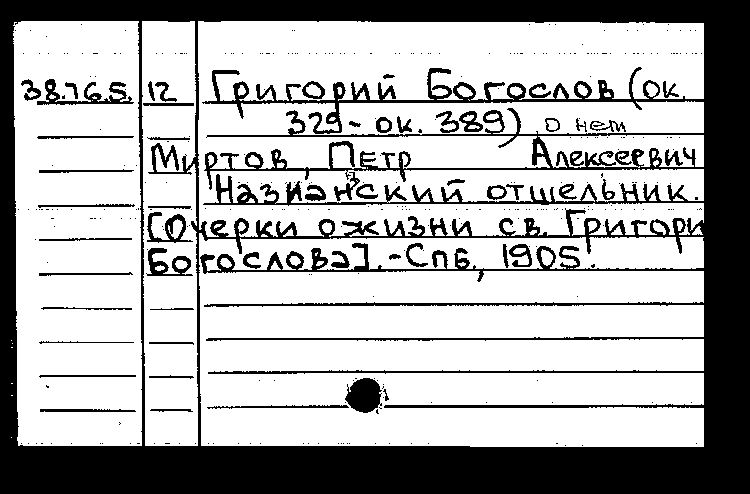 38.76.5. 12 Григорий Богослов (ок.
329- ок. 389) о нем
Миртов, Петр Алексеевич
Назианзский отшельник.
[Очерки о жизни св. Григори
Богослова]. - Спб., 1905.